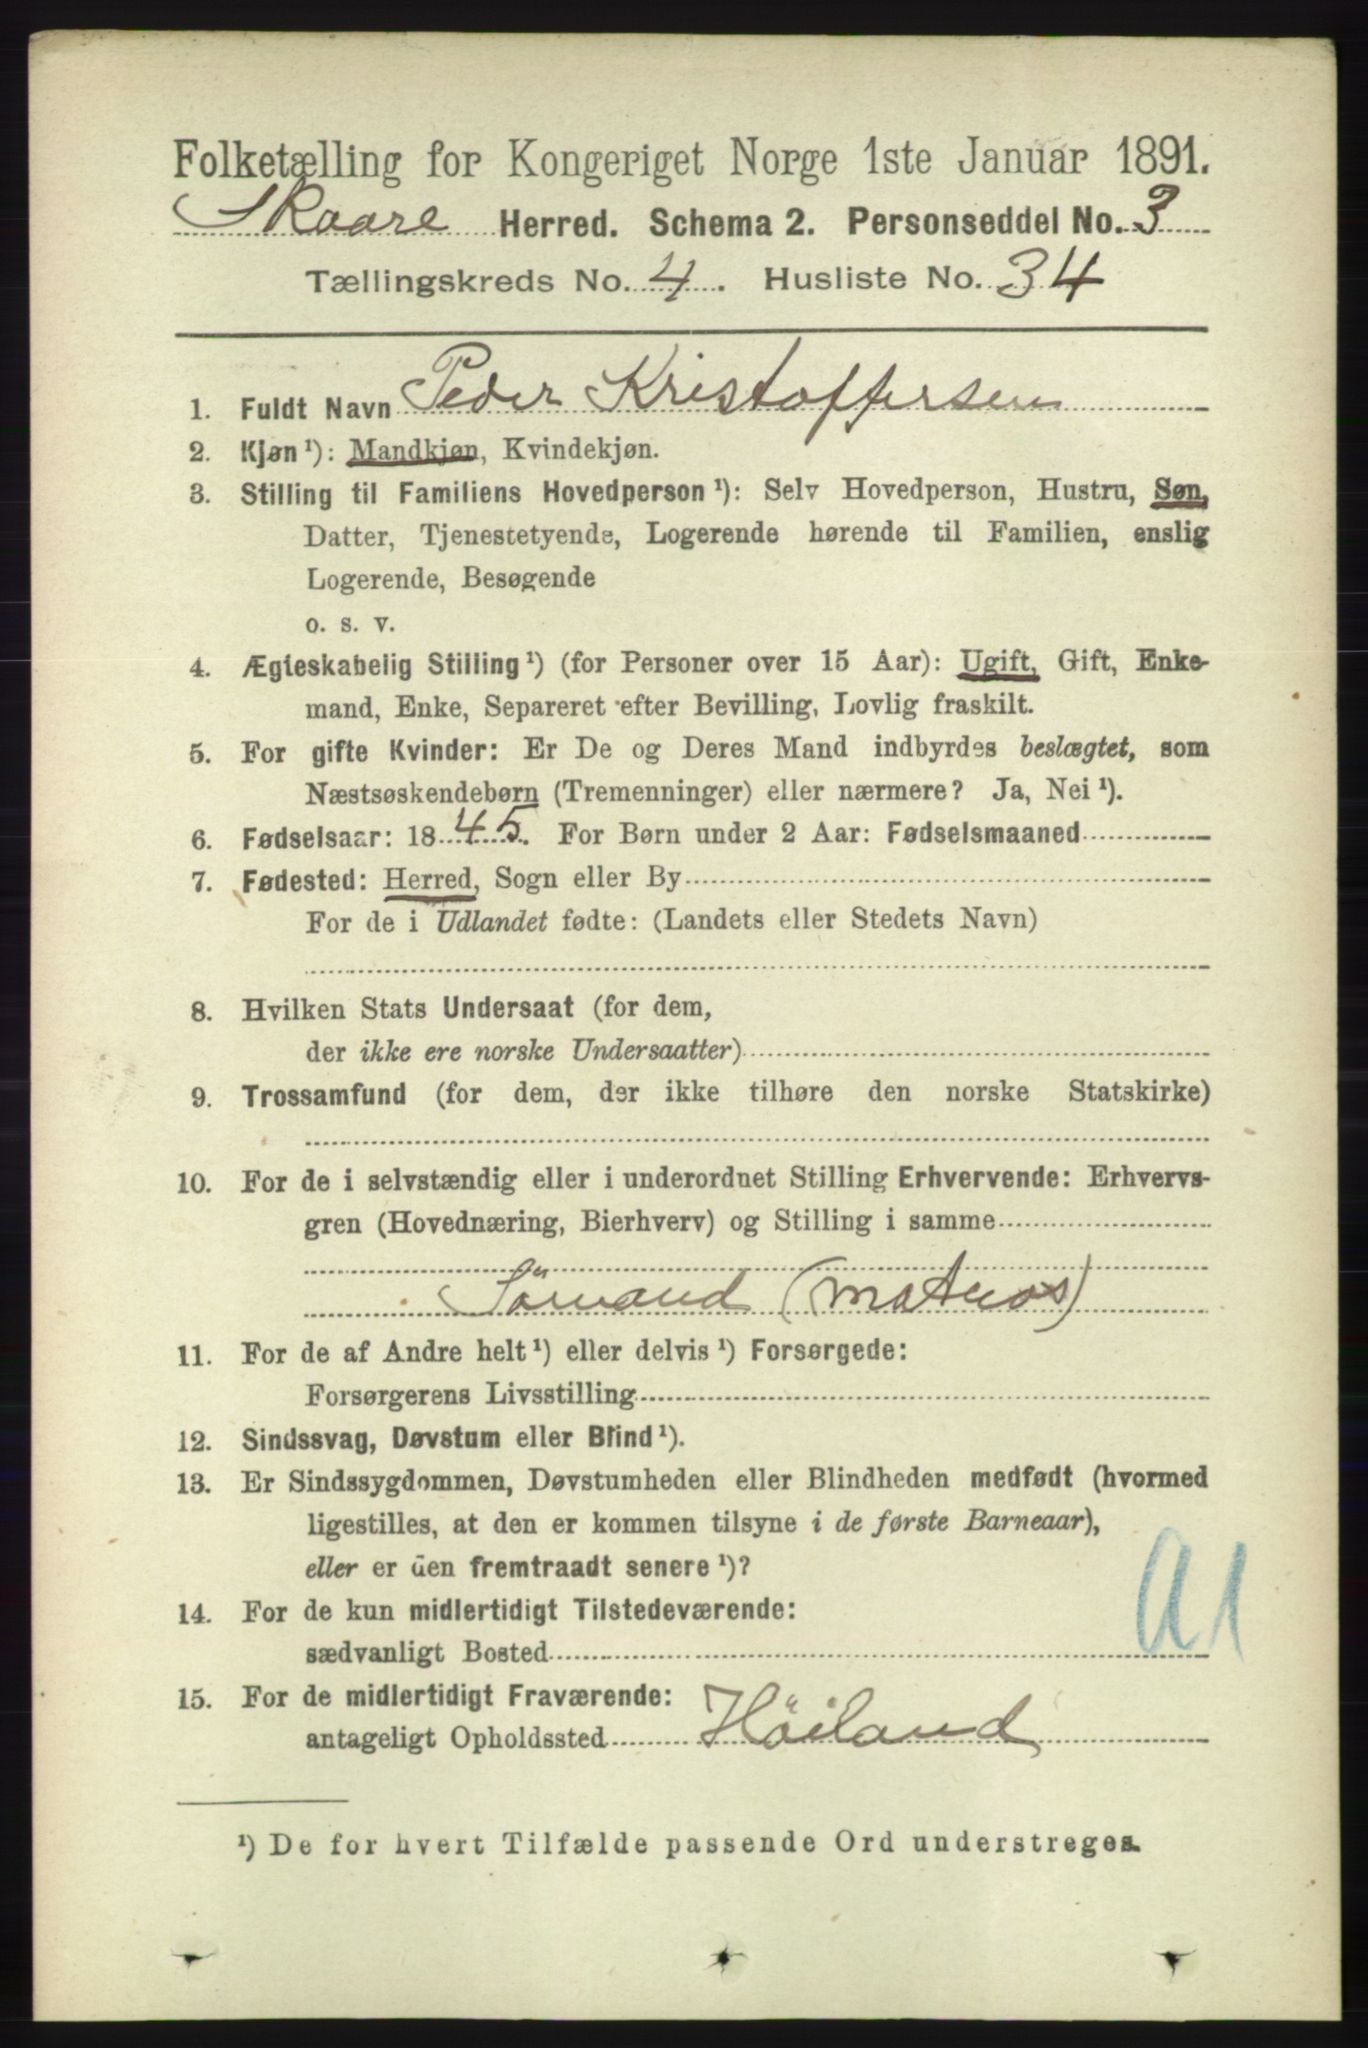 Folketælling for Kongeriget Norge 1ste Januar 1891.
Skaare Herred. Schema 2. Personseddel No. 3
Tællingskreds No. 4. Husliste No. 34
1. Fuldt Navn Peder Kristoffersen
2. Kjøn ¹): Mandkjøn, Kvindekjøn.
3. Stilling til Familiens Hovedperson ¹): Selv Hovedperson, Hustru, Søn,
Datter, Tjenestetyende, Logerende hørende til Familien, enslig
Logerende, Besøgende
o. s. v.
4. Ægteskabelig Stilling ¹) (for Personer over 15 Aar): Ugift, Gift, Enke-
mand, Enke, Separeret efter Bevilling, Lovlig fraskilt.
5. For gifte Kvinder: Er De og Deres Mand indbyrdes beslægtet, som
Næstsøskendebørn (Tremenninger) eller nærmere? Ja, Nei ¹).
6. Fødselsaar: 1845. For Børn under 2 Aar: Fødselsmaaned
7. Fødested: Herred, Sogn eller By
For de i Udlandet fødte: (Landets eller Stedets Navn)
8. Hvilken Stats Undersaat (for dem,
der ikke ere norske Undersaatter)
9. Trossamfund (for dem, der ikke tilhøre den norske Statskirke)
10. For de i selvstændig eller i underordnet Stilling Erhvervende: Erhvervs-
gren (Hovednæring, Bierhverv) og Stilling i samme
Sömand (matros)
11. For de af Andre helt ¹) eller delvis ¹) Forsørgede:
Forsørgerens Livsstilling
12. Sindssvag, Døvstum eller Blind ¹).
13. Er Sindssygdommen, Døvstumheden eller Blindheden medfødt (hvormed
ligestilles, at den er kommen tilsyne i de første Barneaar),
eller er den fremtraadt senere ¹)?
14. For de kun midlertidigt Tilstedeværende:
sædvanligt Bosted
a1
15. For de midlertidigt Fraværende:
antageligt Opholdssted Höiland
¹) De for hvert Tilfælde passende Ord understreges.